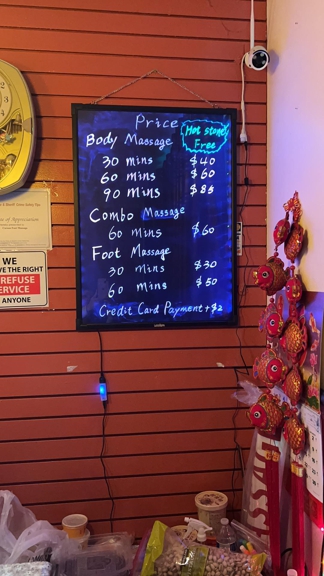 Price
Hot stone
Free
Body Massage
30 mins $40
60 mins $60
90 mins $85
Combo Massage
60 mins $60
Foot Massage
30 mins $30
60 mins $50
Credit Card Payment + $2
of Appreciation
WE
THE RIGHT
REFUSE
SERVICE
ANYONE